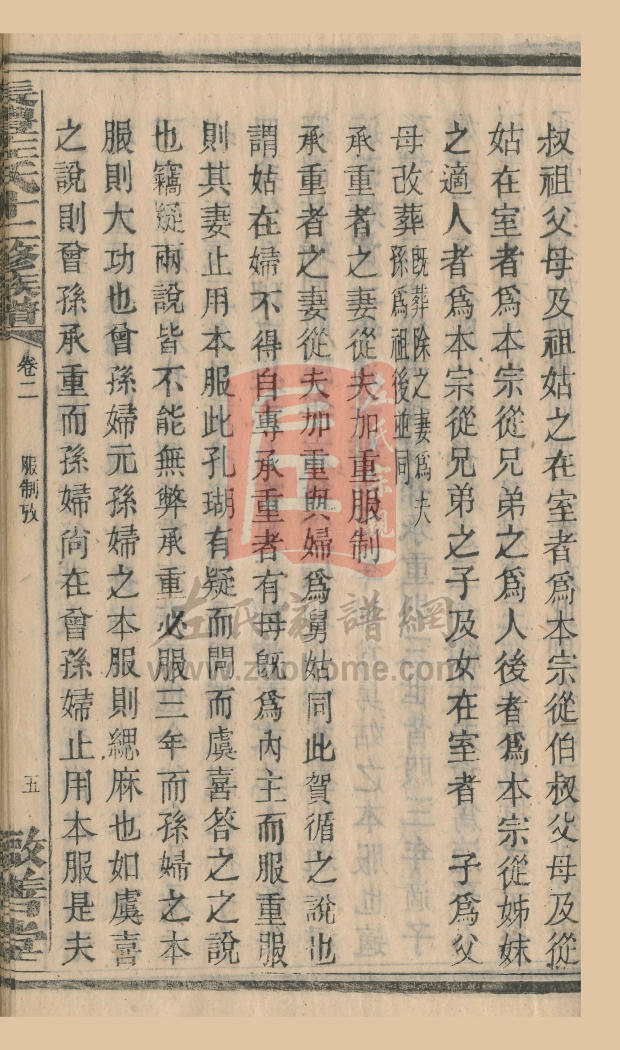 叔祖父母及祖姑之在室者爲本宗從伯叔父母及從
姑在室者爲本宗從兄弟之爲人後者爲本宗從姊妹
之適人者爲本宗從兄弟之子及女在室者　子爲父
母改葬既葬除之妻爲夫
孫爲祖後並同
承重者之妻從夫加重服制
承重者之妻從夫加重與婦爲舅姑同此賀循之說也
謂姑在婦不得自專承重者有母既爲內主而服重服
則其妻止用本服此孔瑚有疑而問而虞喜答之之說
也竊疑兩說皆不能無弊承重必服三年而孫婦之本
服則大功也曾孫婦元孫婦之本服則緦麻也如虞喜
之說則曾孫承重而孫婦尙在曾孫婦止用本服是夫
氏十二修族譜
卷二
服制攷
五
敦善堂
左氏宗親
左氏家譜網
www.zuohome.com